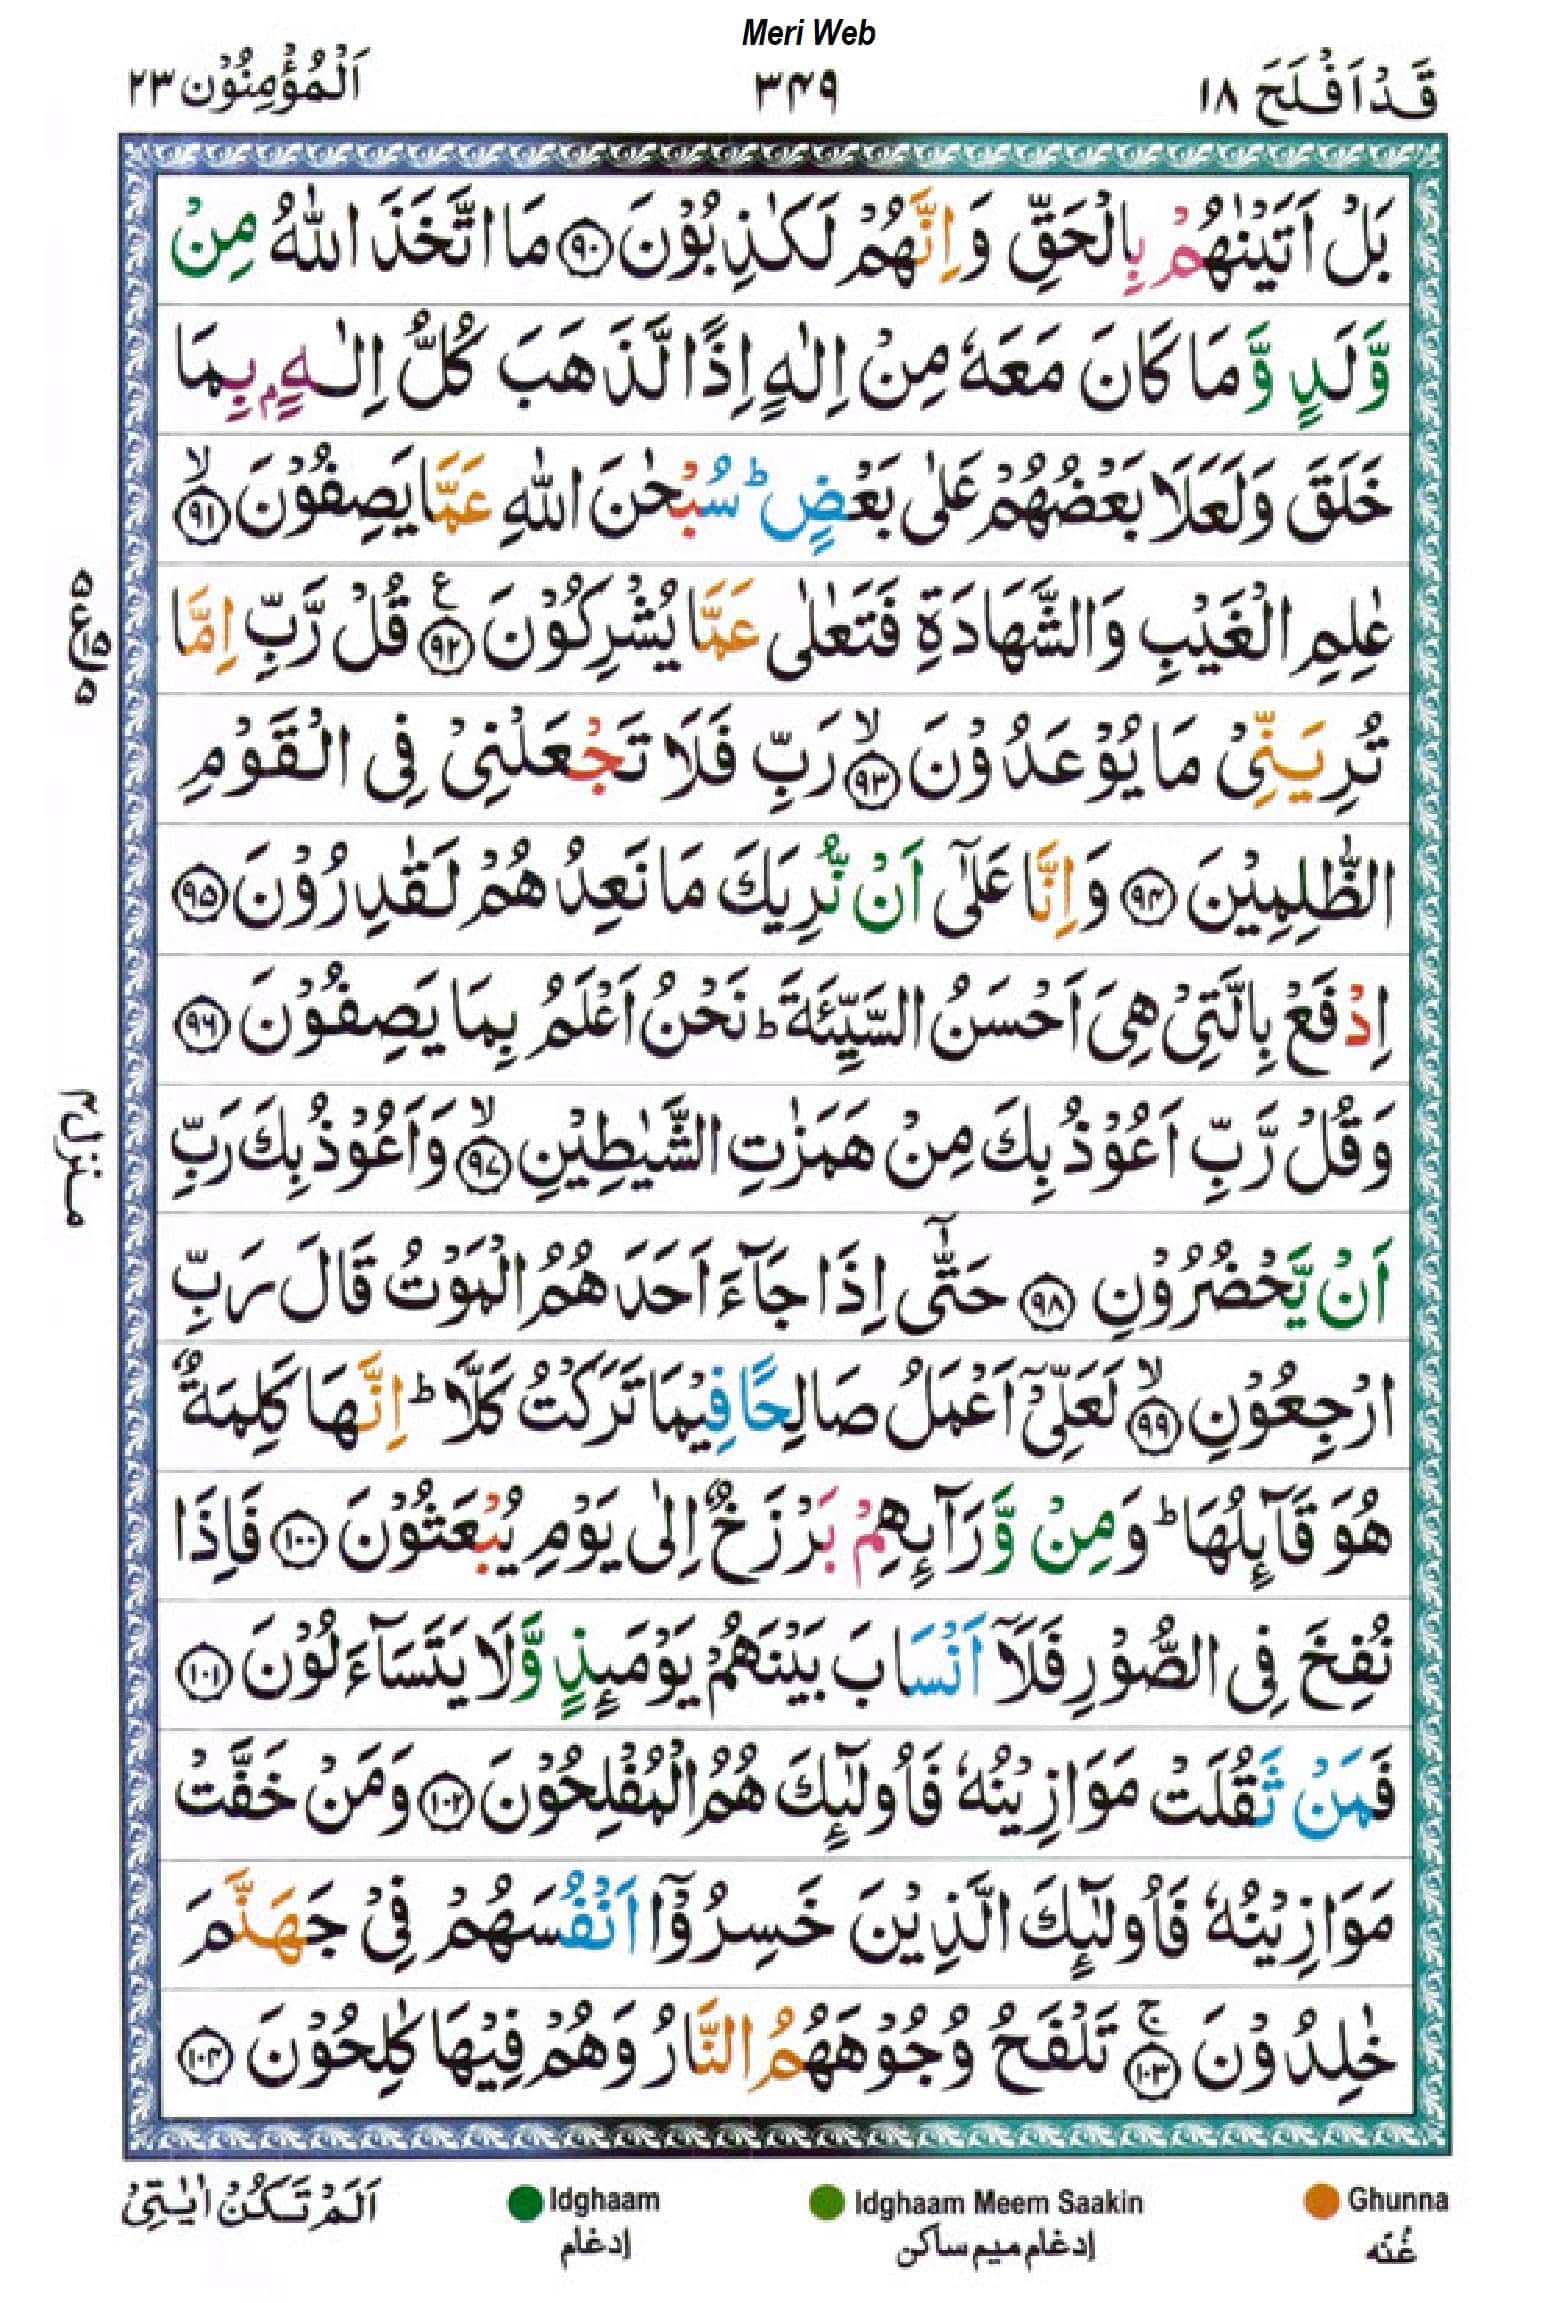 Meri Web
قَدْ اَفْلَحَ ١٨
٣٤٩
اَلْمُؤْمِنُوْن ٢٣
بَلْ اَتَيْنٰهُمْ بِالْحَقِّ وَاِنَّهُمْ لَكٰذِبُوْنَ ٩٠ مَا اتَّخَذَ اللّٰهُ مِنْ
وَّلَدٍ وَّمَا كَانَ مَعَهٗ مِنْ اِلٰهٍ اِذًا لَّذَهَبَ كُلُّ اِلٰهٍۭ بِمَا
خَلَقَ وَلَعَلَا بَعْضُهُمْ عَلٰى بَعْضٍ ؕ سُبْحٰنَ اللّٰهِ عَمَّا يَصِفُوْنَ ۙ ٩١
عٰلِمِ الْغَيْبِ وَالشَّهَادَةِ فَتَعٰلٰى عَمَّا يُشْرِكُوْنَ ع ٩٢ قُلْ رَّبِّ اِمَّا
تُرِيَنِّيْ مَا يُوْعَدُوْنَ ۙ ٩٣ رَبِّ فَلَا تَجْعَلْنِيْ فِي الْقَوْمِ
الظّٰلِمِيْنَ ٩٤ وَاِنَّا عَلٰٓى اَنْ نُّرِيَكَ مَا نَعِدُهُمْ لَقٰدِرُوْنَ ٩٥
اِدْفَعْ بِالَّتِيْ هِيَ اَحْسَنُ السَّيِّئَةَ ؕ نَحْنُ اَعْلَمُ بِمَا يَصِفُوْنَ ٩٦
وَقُلْ رَّبِّ اَعُوْذُ بِكَ مِنْ هَمَزٰتِ الشَّيٰطِيْنِ ۙ ٩٧ وَاَعُوْذُ بِكَ رَبِّ
اَنْ يَّحْضُرُوْنِ ٩٨ حَتّٰٓى اِذَا جَآءَ اَحَدَهُمُ الْمَوْتُ قَالَ رَبِّ
ارْجِعُوْنِ ۙ ٩٩ لَعَلِّيْٓ اَعْمَلُ صَالِحًا فِيْمَا تَرَكْتُ كَلَّا ؕ اِنَّهَا كَلِمَةٌ
هُوَ قَآئِلُهَا ؕ وَمِنْ وَّرَآئِهِمْ بَرْزَخٌ اِلٰى يَوْمِ يُبْعَثُوْنَ ١٠٠ فَاِذَا
نُفِخَ فِي الصُّوْرِ فَلَآ اَنْسَابَ بَيْنَهُمْ يَوْمَئِذٍ وَّلَا يَتَسَآءَلُوْنَ ١٠١
فَمَنْ ثَقُلَتْ مَوَازِيْنُهٗ فَاُولٰٓئِكَ هُمُ الْمُفْلِحُوْنَ ١٠٢ وَمَنْ خَفَّتْ
مَوَازِيْنُهٗ فَاُولٰٓئِكَ الَّذِيْنَ خَسِرُوْٓا اَنْفُسَهُمْ فِيْ جَهَنَّمَ
خٰلِدُوْنَ ۚ ١٠٣ تَلْفَحُ وُجُوْهَهُمُ النَّارُ وَهُمْ فِيْهَا كٰلِحُوْنَ ١٠٤
منزل ٤
اَلَمْ تَكُنْ اٰيٰتِيْ
Idghaam
ادغام
Idghaam Meem Saakin
ادغام میم ساکن
Ghunna
غُنّه